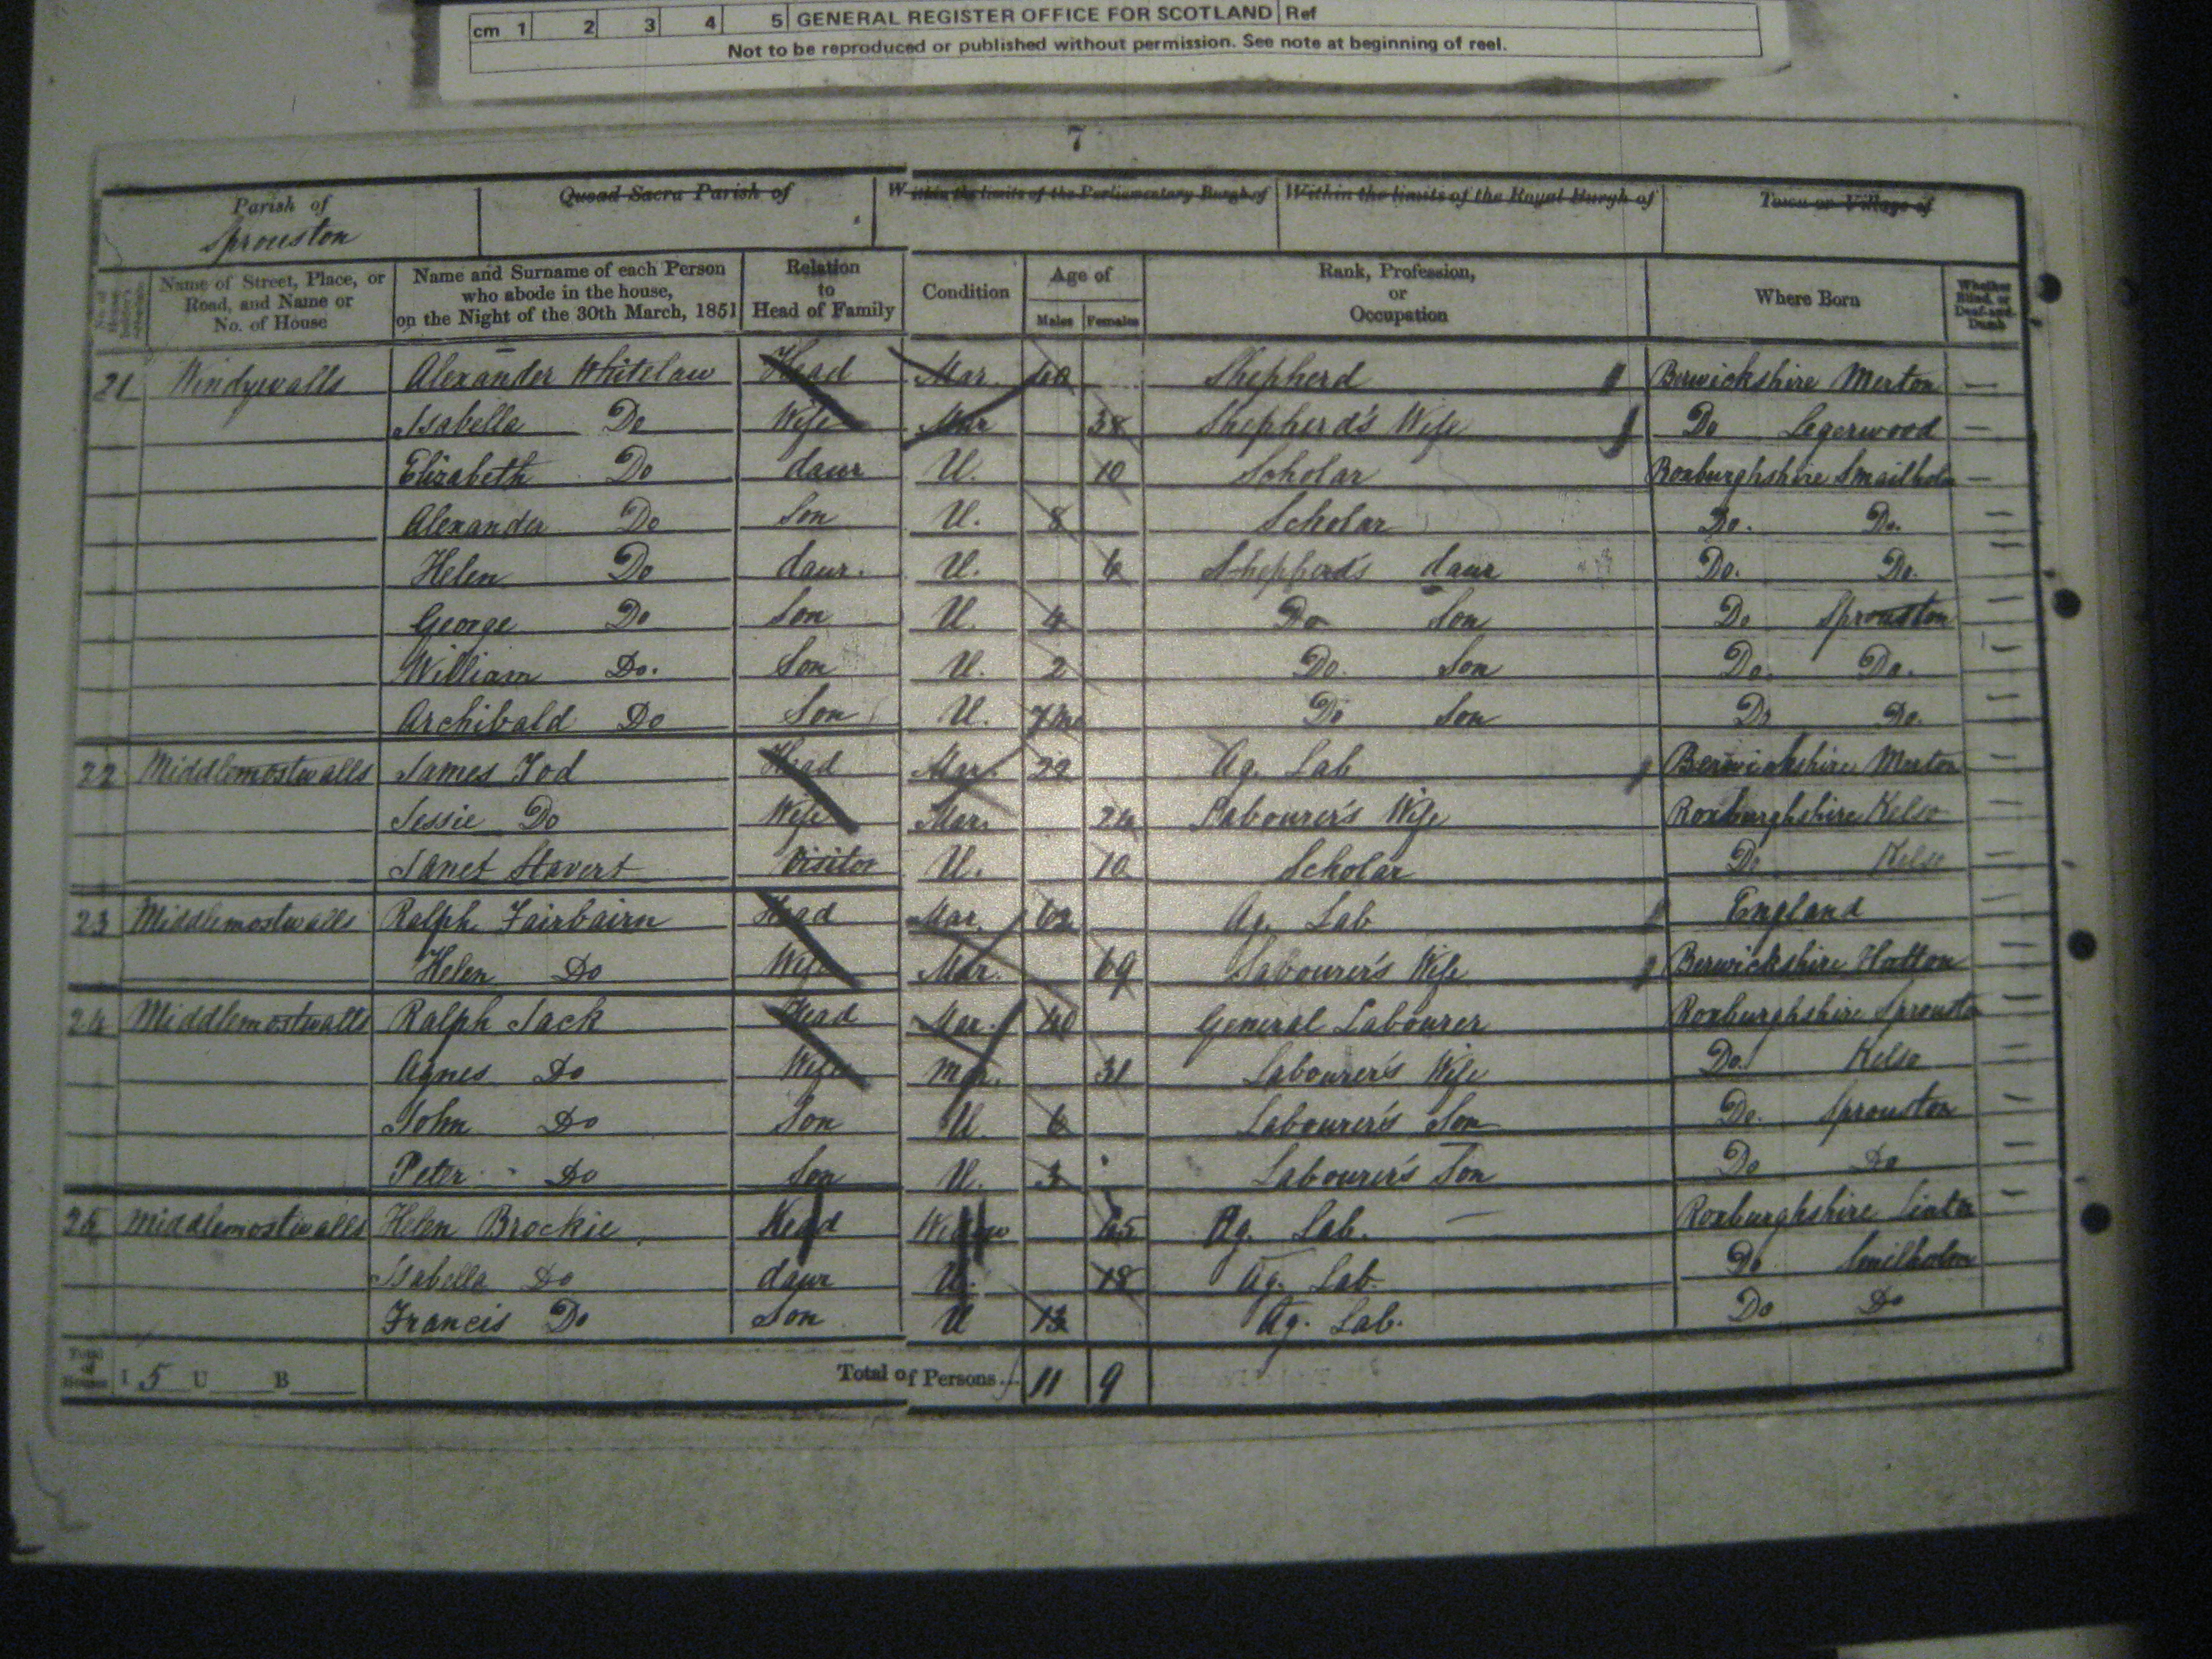 cm 1 2 3 4 5 GENERAL REGISTER OFFICE FOR SCOTLAND Ref
Not to be reproduced or published without permission. See note at beginning of reel.
7
Parish of Quoad Sacra Parish of Within the limits of the Parliamentary Burgh of Within the limits of the Royal Burgh of Town or Village of
Sprouston
Name of Street, Place, or Road, and Name or No. of House
Name and Surname of each Person who abode in the house, on the Night of the 30th March, 1851
Relation to Head of Family
Condition
Age of
Males Females
Rank, Profession, or Occupation
Where Born
Whether Blind, or Deaf-and-Dumb
21 Windywalls Alexander Whitelaw Head Mar. 40 Shepherd Berwickshire Merton —
Isabella Do Wife Mar 38 Shepherd's Wife Do Legerwood —
Elizabeth Do daur U. 10 Scholar Roxburghshire Smailholm —
Alexander Do Son U. 8 Scholar Do. Do. —
Helen Do daur. U. 6 Shepherd's daur Do. Do. —
George Do Son U. 4 Do Son Do Sprouston —
William Do. Son U. 2 Do. Son Do. Do. —
Archibald Do Son U. 7 mo Do Son Do Do. —
22 Middlemostwalls James Tod Head Mar. Ag. Lab Berwickshire Merton —
Jessie Do Wife Mar. 24 Labourer's Wife Roxburghshire Kelso —
Janet Stavert Visitor U. 10 Scholar Do Kelso —
23 Middlemostwalls Ralph Fairbairn Head Mar. 62 Ag. Lab England —
Helen Do Wife Mar. 69 Labourer's Wife Berwickshire Hutton —
24 Middlemostwalls Ralph Jack Head Mar. 40 General Labourer Roxburghshire Sprouston —
Agnes Do Wife Mar. 31 Labourer's Wife Do. Kelso —
John Do Son U. 6 Labourer's Son Do. Sprouston —
Peter Do Son U. 3 Labourer's Son Do Do —
25 Middlemostwalls Helen Brockie Head Widow Ag. Lab. — Roxburghshire Linton —
Isabella Do daur U. 18 Ag. Lab. Do Smilholm
Francis Do Son U 13 Ag. Lab. Do Do
Total of Houses I 5 U B Total of Persons... 11 9